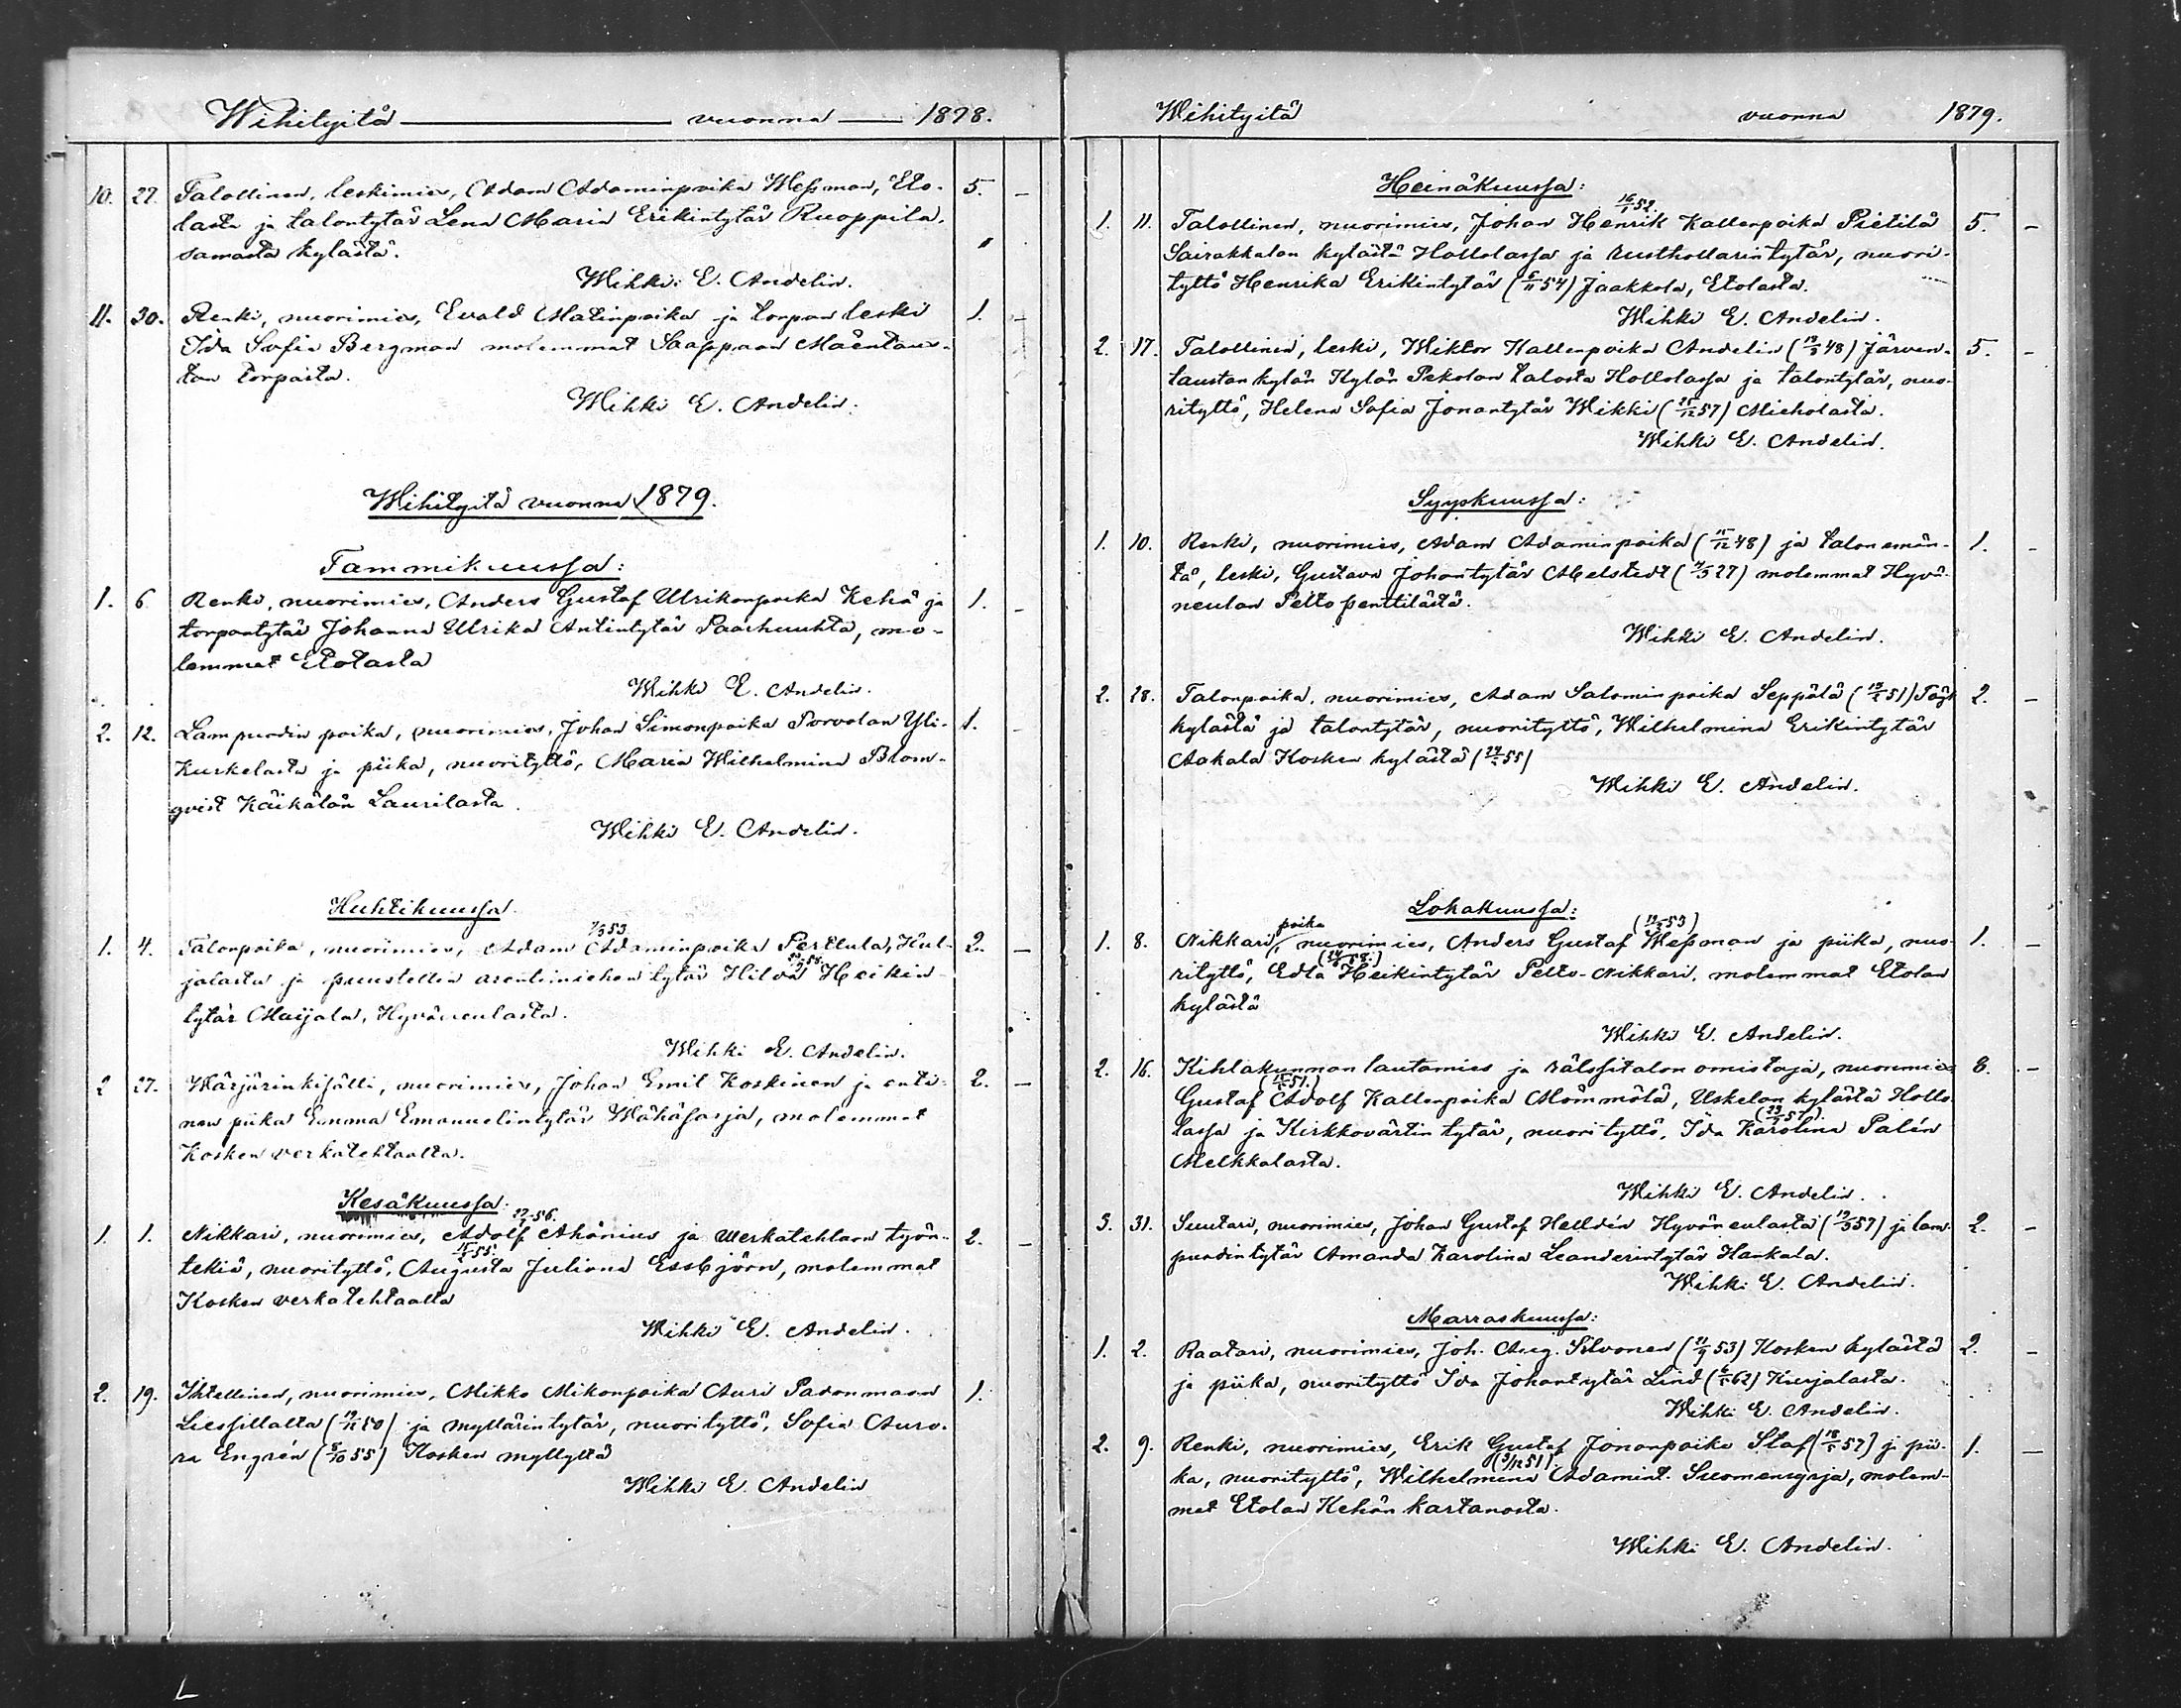 Wihityitä vuonna 1878.
10. 27. Talollinen, leskimies, Adam Adaminpoika Wessman, Eto- 5. –
lasta ja talontytär Lena Maria Erikintytär Ruoppila,
samasta kylästä.
Wihki E. Andelin.
11. 30. Renki, nuorimies, Evald Matinpoika ja torpan leski 1. –
Ida Sofia Bergman molemmat Saappaan Mäentaus-
tan torpasta.
Wihki E. Andelin.
Wihityitä vuonna 1879.
Tammikuussa:
1. 6 Renki, nuorimies, Anders Gustaf Ulrikanpoika Kehä ja 1. –
torpantytär Johanna Ulrika Antintytär Paarhuuhta, mo-
lemmat Etolasta
Wihki E. Andelin.
2. 12. Lampuodin poika, nuorimies, Johan Simonpoika Porvolan Yli- 1. –
Kurkelasta ja piika, nuorityttö, Maria Wilhelmina Blom-
qvist Käikälän Laurilasta.
Wihki E. Andelin.
Huhtikuussa.
7/3 53
1. 4. Talonpoika, nuorimies, Adam Adaminpoika Perttula, Kul- 2. –
jalasta ja puustellin arentimiehen tytär Hilda Heikin
tytär Maijala, Hyväneulasta.
Wihki E. Andelin.
2 27. Wärjärinkisälli, nuorimies, Johan Emil Koskinen ja enti- 2. –
nen piika Emma Emanuelintytär Wähäsarja, molemmat
Kosken verkatehtaalta.
Kesäkuussa:
1. 1. Nikkari, nuorimies, Adolf Ahänius ja werkatehtaan työn- 2. –
tekiä, nuorityttö, Augusta Juliana Essbjörn, molemmat
Kosken verkatehtaalta
Wihki E. Andelin.
2. 19. Ihtellinen, nuorimies, Mikko Mikonpoika Auri Padonmaan 1.
Liessillalta (19/11 50) ja myllärintytär, nuorityttö, Sofia Auro-
ra Engrén (5/10 55) Kosken myllyltä
Wihki E. Andelin
Wihityitä vuonna 1879.
Heinäkuussa:
16/1 52.
1. 11. Talollinen, nuorimies, Johan Henrik Kallenpoika Pietilä 5. –
Sairakkalan kylästä Hollolassa ja rusthollarintytär, nuori-
tyttö Henrika Erikintytär (6/11 54) Jaakkola, Etolasta.
Wihki E. Andelin.
2. 17. Talollinen, leski, Wiktor Kallenpoika Andelin (19/3 48) Järven- 5. –
taustan kylän Kylän Pekolan talosta Hollolassa ja talontytär, nuo-
rityttö, Helena Sofia Jonantytär Wikki (25/12 57) Mieholasta.
Wihki E. Andelin.
Syyskuussa:
1. 10. Renki, nuorimies, Adam Adaminpoika (15/12 48) ja talon emän- 1. –
tä, leski, Gustava Johantytär Melstedt (7/3 27) molemmat Hyvä-
neulan Peltopenttilästä.
Wihki E. Andelin.
2. 28. Talonpoika, nuorimies, Adam Salominpoika Seppälä (51) 2. –
kylästä ja talontytär, nuorityttö, Wilhelmina Erikintytär
Aakala Kosken kylästä (55)
Wihki E. Andelin.
Lokakuussa:
poika (53)
1. 8. Nikkari, nuorimies, Anders Gustaf Wessman ja piika, nuo- 1. –
rityttö, Edla Heikintytär Pelto-Nikkari, molemmat Etolan
kylästä
Wihki E. Andelin.
2. 16. Kihlakunnan lautamies ja rälssitalon omistaja, nuorimies 6. –
Gustaf Adolf Kallenpoika Mömmölä, Uskelan kylästä Hollo-
lassa ja Kirkkovärtin tytär, nuori tyttö, Ida Karolina Palén
Melkkalasta.
Wihki E. Andelin.
3. 31. Suutari, nuorimies, Johan Gustaf Helldén Hyväneulasta (19/3 57) ja lam- 2. –
puodintytär Amanda Karolina Leanderintytär Hankala.
Wihki E. Andelin.
Marraskuussa:
1. 2. Raatari, nuorimies, Joh. Aug. Silvonen (21/9 53) Kosken kylästä 2. –
ja piika, nuorityttö Ida Johantytär Lind (62) Kurjalasta.
Wihki E. Andelin.
2. 9. Renki, nuorimies, Erik Gustaf Jonanpoika Staf (18/5 57) ja pii- 1. –
(3/12 51).
ka, nuorityttö, Wilhelmina Adamint. Suomensyrja, molem-
mat Etolan Kehän kartanosta.
Wihki E. Andelin.